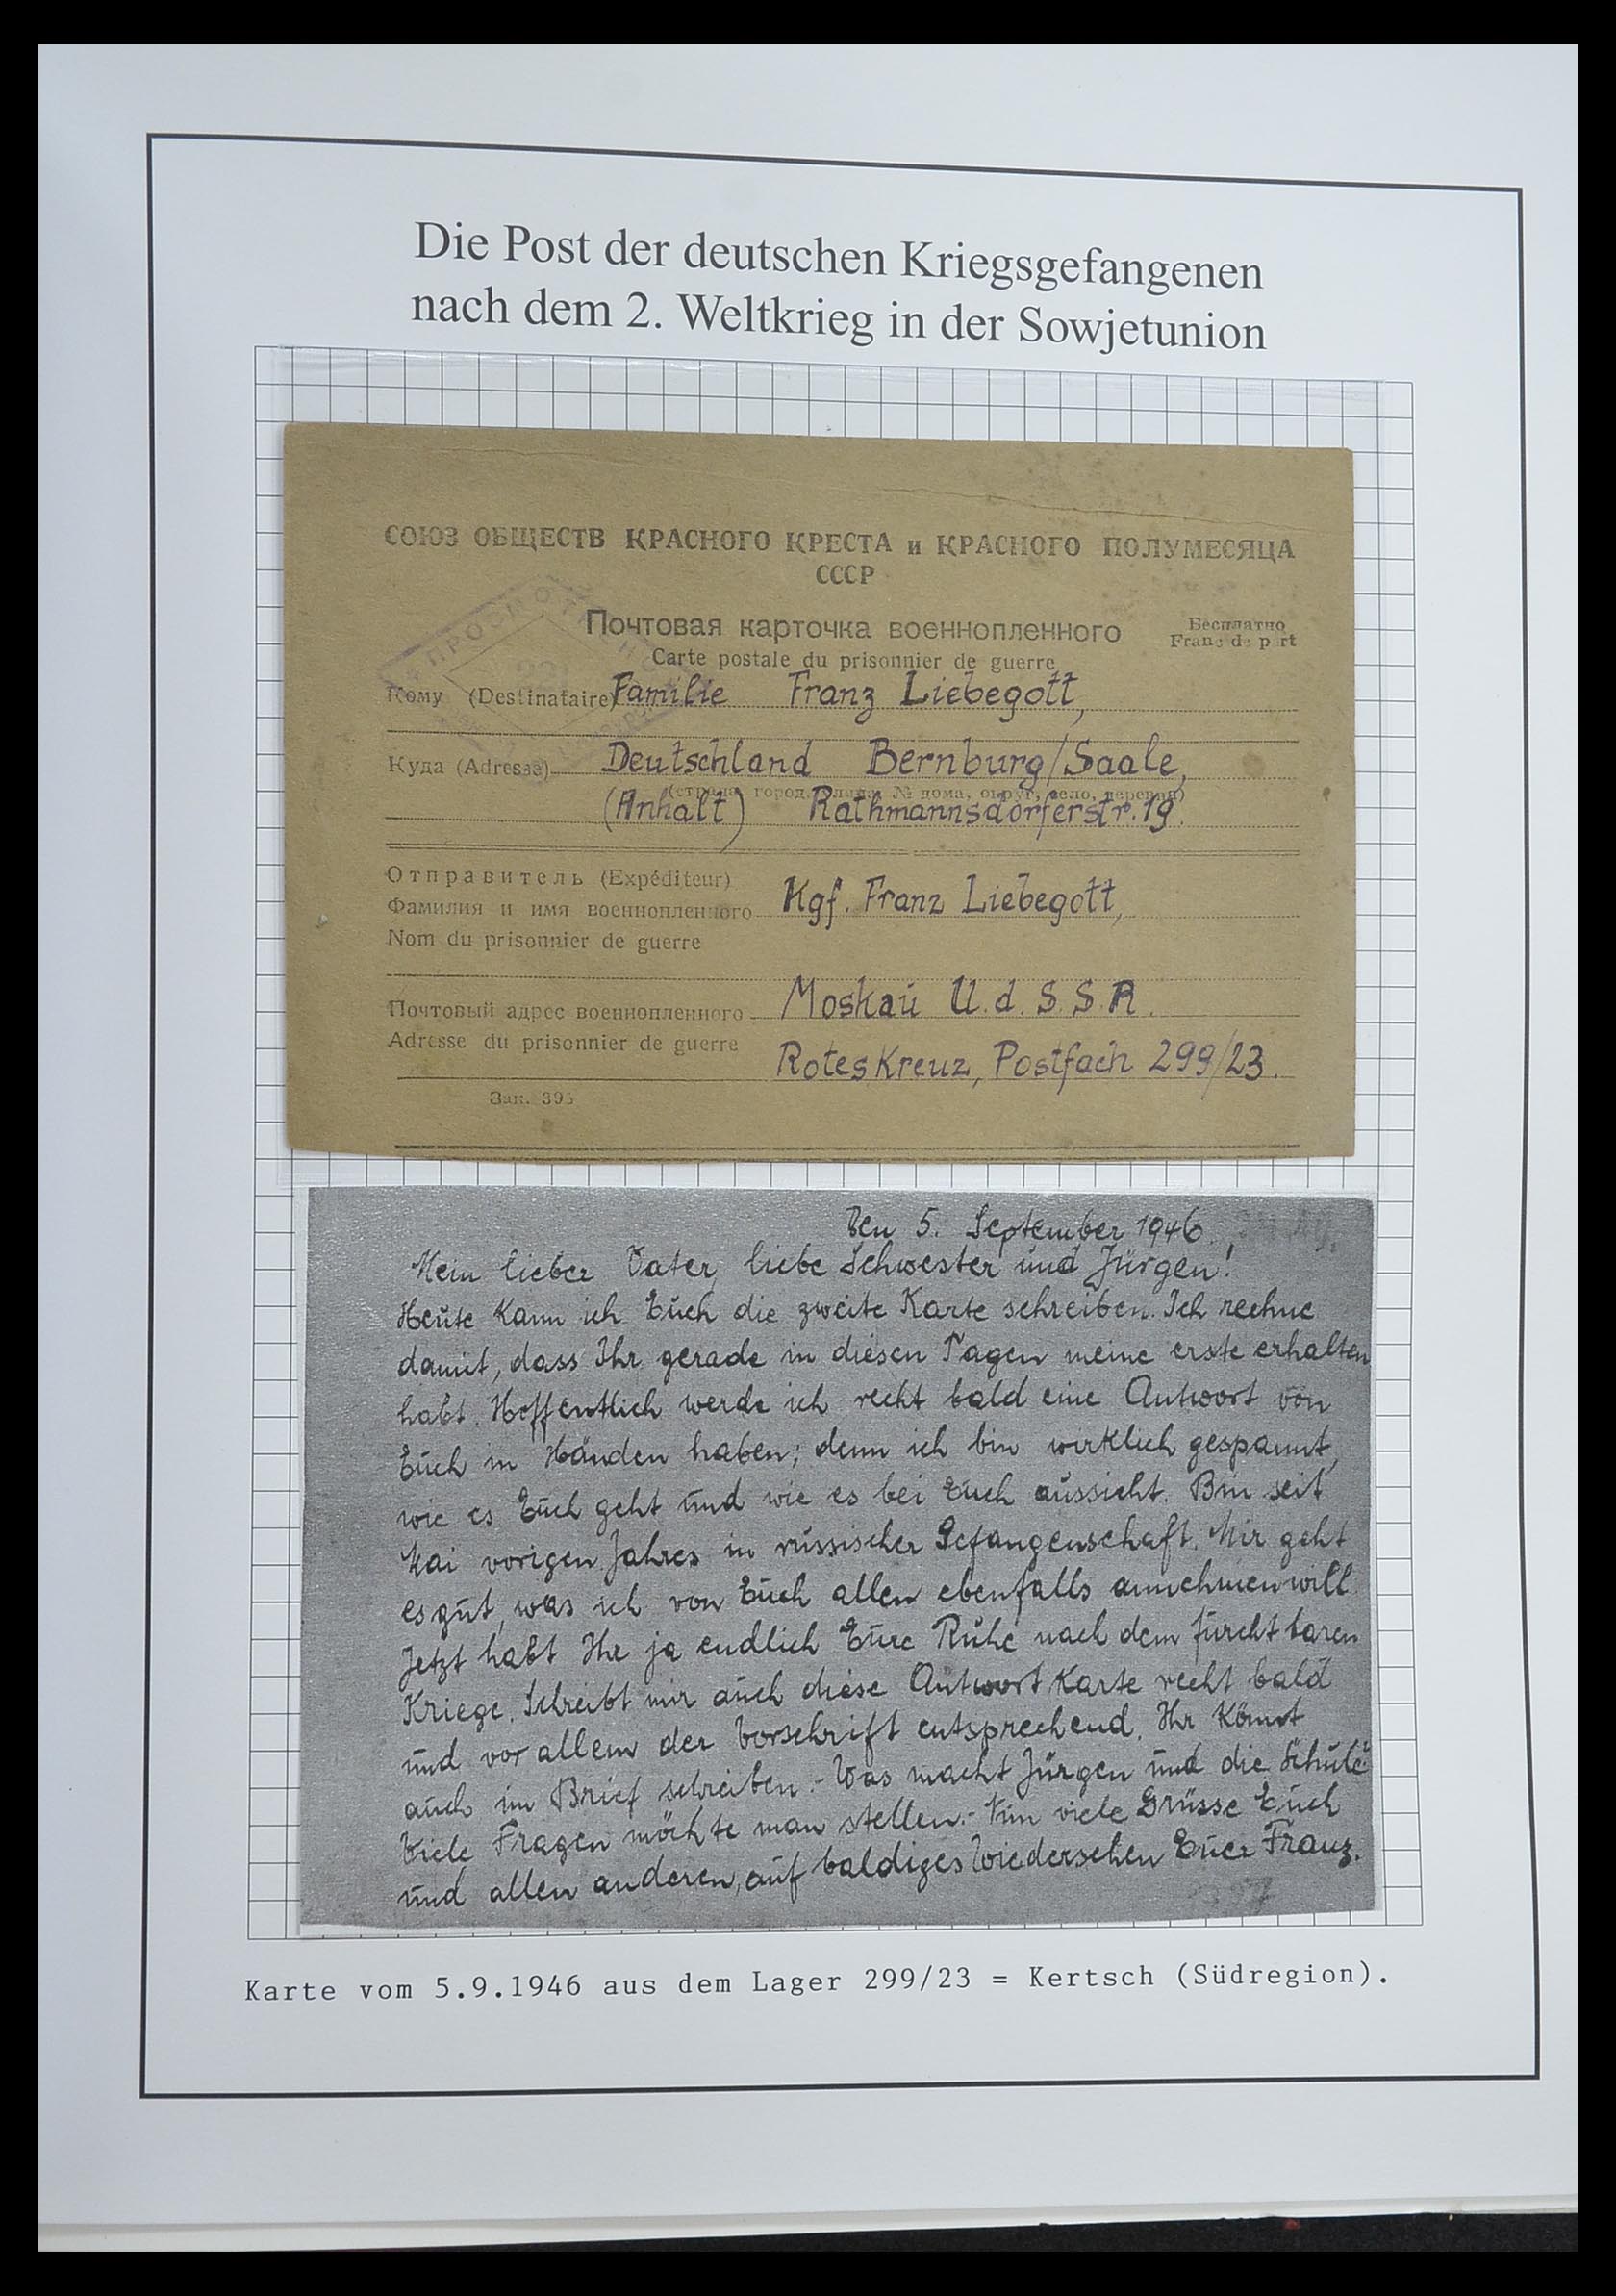 Die Post der deutschen Kriegsgefangenen
nach dem 2. Weltkrieg in der Sowjetunion
СОЮЗ ОБЩЕСТВ КРАСНОГО КРЕСТА и КРАСНОГО ПОЛУМЕСЯЦА
СССР
ПРОСМОТРЕНО
Почтовая карточка военнопленного
Бесплатно
Carte postale du prisonnier de guerre
Franc de port
Кому (Destinataire) Familie Franz Liebegott,
Куда (Adresse) Deutschland Bernburg/Saale,
(страна, город, улица, № дома, округ, село, деревня)
(Anhalt) Rathmannsdorferstr. 19.
Отправитель (Expéditeur)
Фамилия и имя военнопленного Kgf. Franz Liebegott,
Nom du prisonnier de guerre
Почтовый адрес военнопленного Moskau U.d.S.S.R.
Adresse du prisonnier de guerre
Rotes Kreuz, Postfach 299/23.
Зак. 393
Den 5. September 1946.
Mein lieber Vater, liebe Schwester und Jürgen!
Heute kann ich Euch die zweite Karte schreiben. Ich rechne
damit, dass Ihr gerade in diesen Tagen meine erste erhalten
habt. Hoffentlich werde ich recht bald eine Antwort von
Euch in Händen haben; denn ich bin wirklich gespannt,
wie es Euch geht und wie es bei Euch aussieht. Bin seit
Mai vorigen Jahres in russischer Gefangenschaft. Mir geht
es gut, was ich von Euch allen ebenfalls annehmen will.
Jetzt habt Ihr ja endlich Eure Ruhe nach dem furchtbaren
Kriege. Schreibt mir auch diese Antwortkarte recht bald
und vor allem der Vorschrift entsprechend. Ihr könnt
auch im Brief schreiben.- Was macht Jürgen und die Schule?
Viele Fragen möchte man stellen.- Nun viele Grüsse Euch
und allen anderen, auf baldiges Wiedersehen Euer Franz.
Karte vom 5.9.1946 aus dem Lager 299/23 = Kertsch (Südregion).